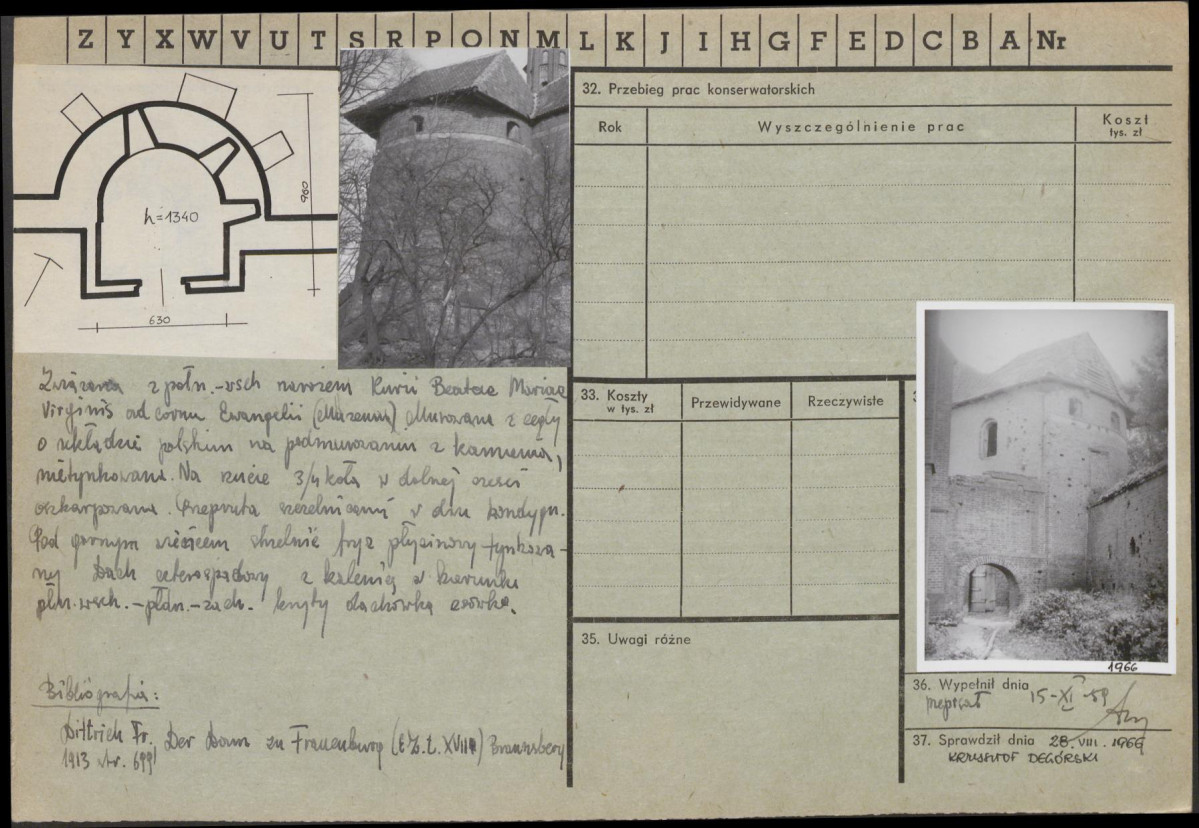 Z Y X W V U T S R P O N M L K J I H G F E D C B A Nr
960
h=1340
630
Związana z połn.-wsch narożem Kurii Beatae Mariae
Virginis ad cornu Evangelii (Muzeum) Murowana z cegły
o układzie polskim na podmurowaniu z kamienia,
nietynkowana. Na rzucie 3/4 koła w dolnej części
oszkarpowana. Przepruta strzelnicami w dwu kondygn.
Pod gornym wieńcem strzelnic fryz płycinowy tynkowa-
ny Dach czterospadowy z kalenicą w kierunku
płn.wsch.-płdn.-zach. kryty dachówką
Bibliografia:
Dittrich Fr. Der Dom zu Frauenburg (E.Z.t. XVIII) Braunsberg
1913 str. 699
32. Przebieg prac konserwatorskich
Rok Wyszczególnienie prac Koszt
tys. zł
33. Koszty
w tys. zł Przewidywane Rzeczywiste
35. Uwagi różne
1966
36. Wypełnił dnia 15-XI-59
37. Sprawdził dnia 28.VIII.1966
KRZYSZTOF DEGÓRSKI